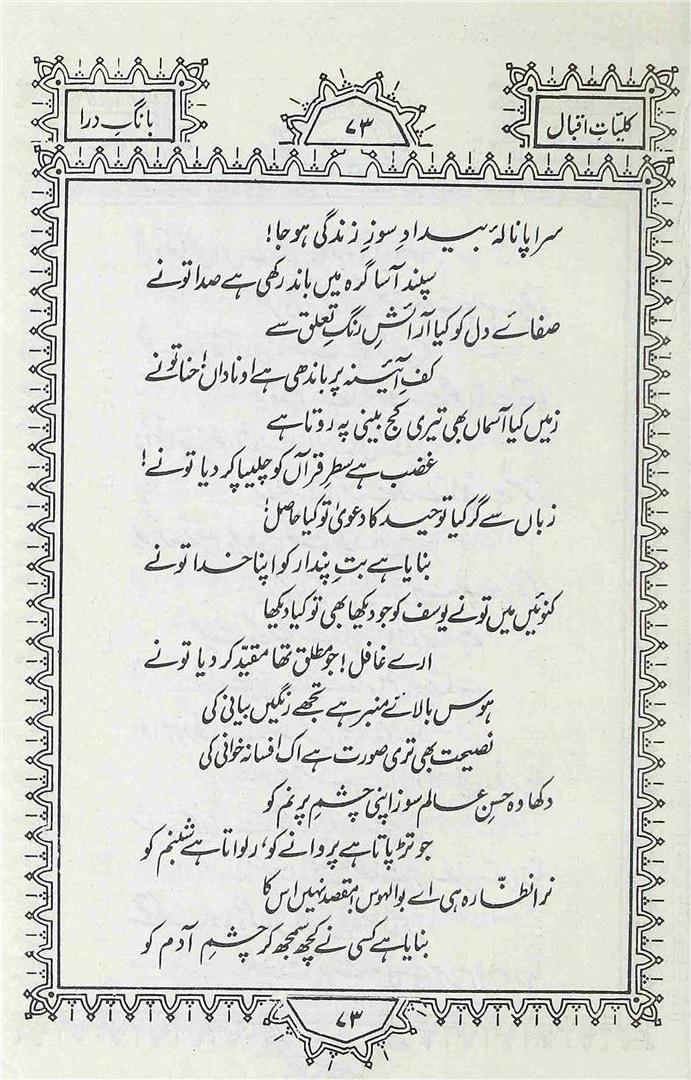 کلیاتِ اقبال
۷۳
بانگِ درا
سراپا نالۂ بیدادِ سوزِ زندگی ہو جا!
سپند آسا گرہ میں باندھ رکھی ہے صدا تو نے
صفائے دل کو کیا آرائشِ رنگِ تعلق سے
کفِ آئینہ پر باندھی ہے او ناداں! حنا تو نے
زمیں کیا آسماں بھی تیری کج بینی پہ روتا ہے
غضب ہے سطرِ قرآں کو چلیپا کر دیا تو نے!
زباں سے گر کیا توحید کا دعویٰ تو کیا حاصل!
بنایا ہے بتِ پندار کو اپنا خدا تو نے
کنوئیں میں تو نے یوسف کو جو دیکھا بھی تو کیا دیکھا
ارے غافل! جو مطلق تھا مقیّد کر دیا تو نے
ہوس بالائے منبر ہے تجھے رنگیں بیانی کی
نصیحت بھی تری صورت ہے اک افسانہ خوانی کی
دکھا وہ حسنِ عالم سوز اپنی چشمِ پرنم کو
جو تڑپاتا ہے پروانے کو، رلواتا ہے شبنم کو
نرا نظّارہ ہی اے بوالہوس! مقصد نہیں اس کا
بنایا ہے کسی نے کچھ سمجھ کر چشمِ آدم کو
۷۳